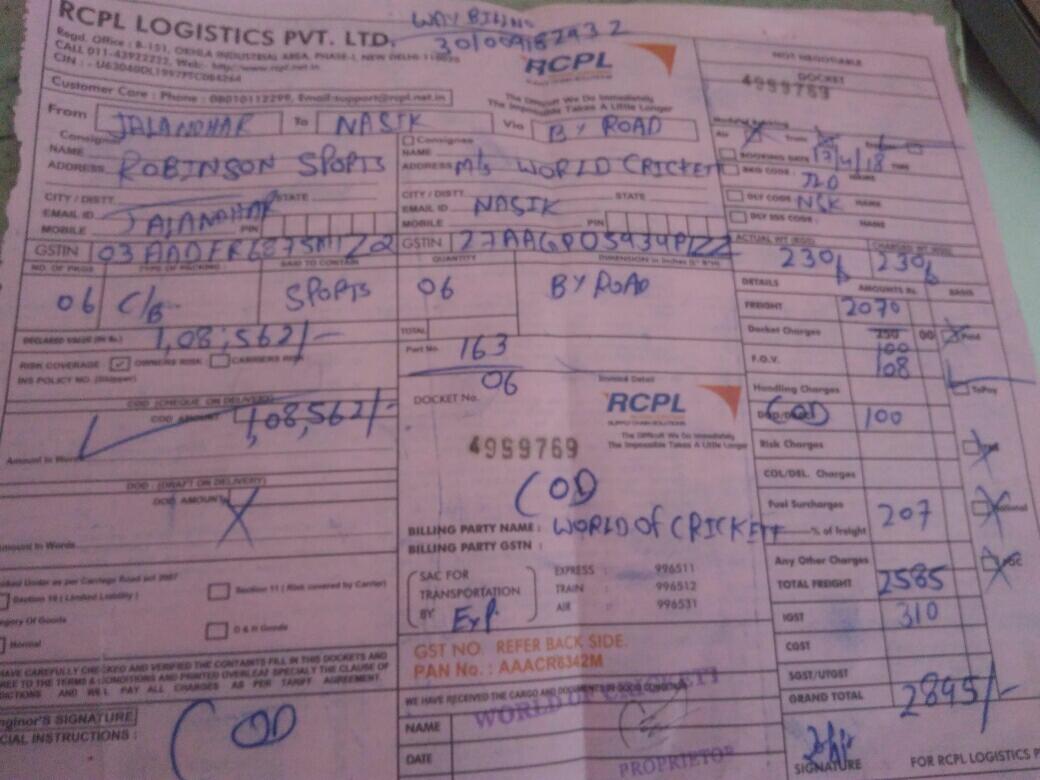 RCPL LOGISTICS PVT. LTD.
WAY BILL NO
Regd. Office : B-151, OKHLA INDUSTRIAL AREA, PHASE-I, NEW DELHI-110020
CALL 011-43922222, Web:- http://www.rcpl.net.in
Customer Care : Phone : 08010112299, Email:support@rcpl.net.in
RCPL
The Difficult We Do Immediately
The Impossible Takes A Little Longer
NOT NEGOTIABLE
DOCKET
4959769
From JALANDHAR To NASIK Via BY ROAD
NAME
ADDRESS ROBINSON SPORTS
CITY / DISTT. STATE
EMAIL ID JALANDHAR
MOBILE PIN
GSTIN
Consignee
NAME
ADDRESS M/s WORLD CRICKET
CITY / DISTT. STATE
EMAIL ID NASIK
MOBILE PIN
GSTIN
BOOKING DATE 12/4/18
BKG CODE :
DLY CODE : NSK NAME
DLY SSS CODE : NAME
ACTUAL WT (KGS) CHARGED WT (KGS)
230 230
NO. OF PKGS TYPE OF PACKING SAID TO CONTAIN QUANTITY
06 C/B SPORTS 06 BY ROAD
DECLARED VALUE (IN Rs.) 1,08,562/-
TOTAL
RISK COVERAGE OWNERS RISK CARRIERS RISK
INS POLICY NO. (Shipper)
Part No. 163
06
COD (CHEQUE ON DELIVERY)
COD AMOUNT 1,08,562/-
Amount in Words
DOD : (DRAFT ON DELIVERY)
DOD AMOUNT X
Amount in Words
DOCKET No.
4959769
RCPL
SUPPLY CHAIN SOLUTIONS
The Difficult We Do Immediately
The Impossible Takes A Little Longer
COD
BILLING PARTY NAME : WORLD Of CRICKETT
BILLING PARTY GSTN :
SAC FOR
TRANSPORTATION
BY Exp.
EXPRESS : 996511
TRAIN : 996512
AIR : 996531
GST NO. REFER BACK SIDE.
PAN No. : AAACR6342M
Section 11 ( Risk covered by Carrier)
Section 10 ( Limited Liability )
Normal
D & H Goods
HAVE CAREFULLY CHECKED AND VERIFIED THE CONTAINTS FILL IN THIS DOCKETS AND
TERMS & CONDITIONS AND PRINTED OVERLEAF SPECIALY THE CLAUSE OF
AND WILL PAY ALL CHARGES AS PER TARIFF AGREEMENT.
SIGNATURE
INSTRUCTIONS :
COD
WE HAVE RECEIVED THE CARGO AND DOCUMENTS IN GOOD CONDITION
WORLD OF CRICKETT
NAME
DATE
PROPRIETOR
DETAILS AMOUNTS Rs. BASIS
FREIGHT 2070
Docket Charges 100 Paid
F.O.V. 108
Handling Charges ToPay
COD 100
Risk Charges
COL/DEL. Charges
Fuel Surcharges
% of freight 207
Any Other Charges
TOTAL FREIGHT 2585
IGST 310
CGST
SGST/UTGST
GRAND TOTAL 2895/-
SIGNATURE FOR RCPL LOGISTICS